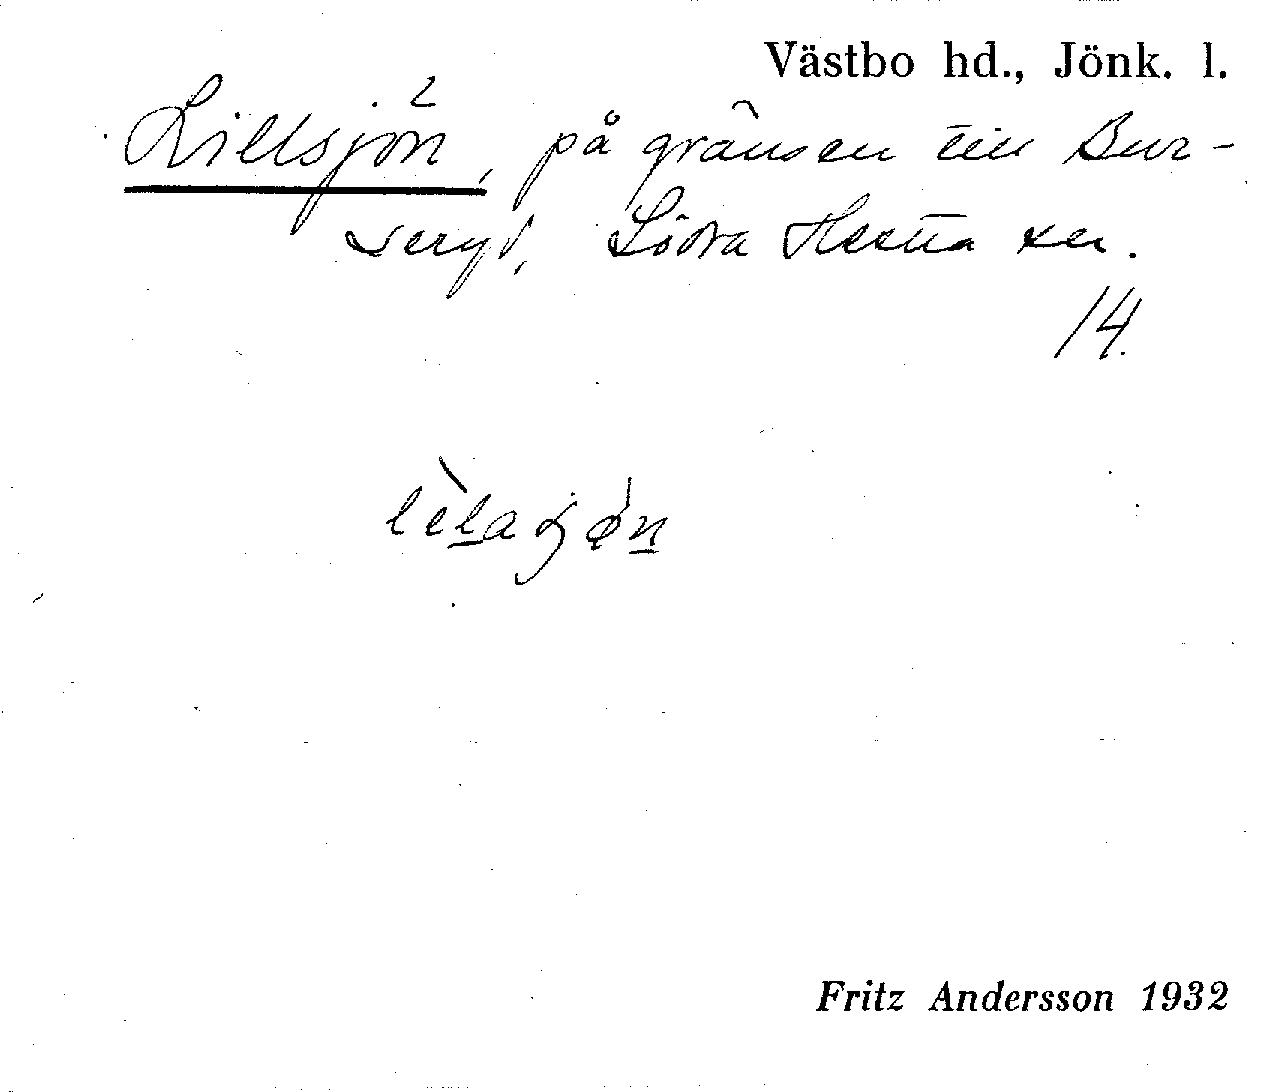 Västbo hd., Jönk. l.
2
Lillsjön, på gränsen till Bur-
seryd, Södra Hestra sn.
14.
Fritz Andersson 1932